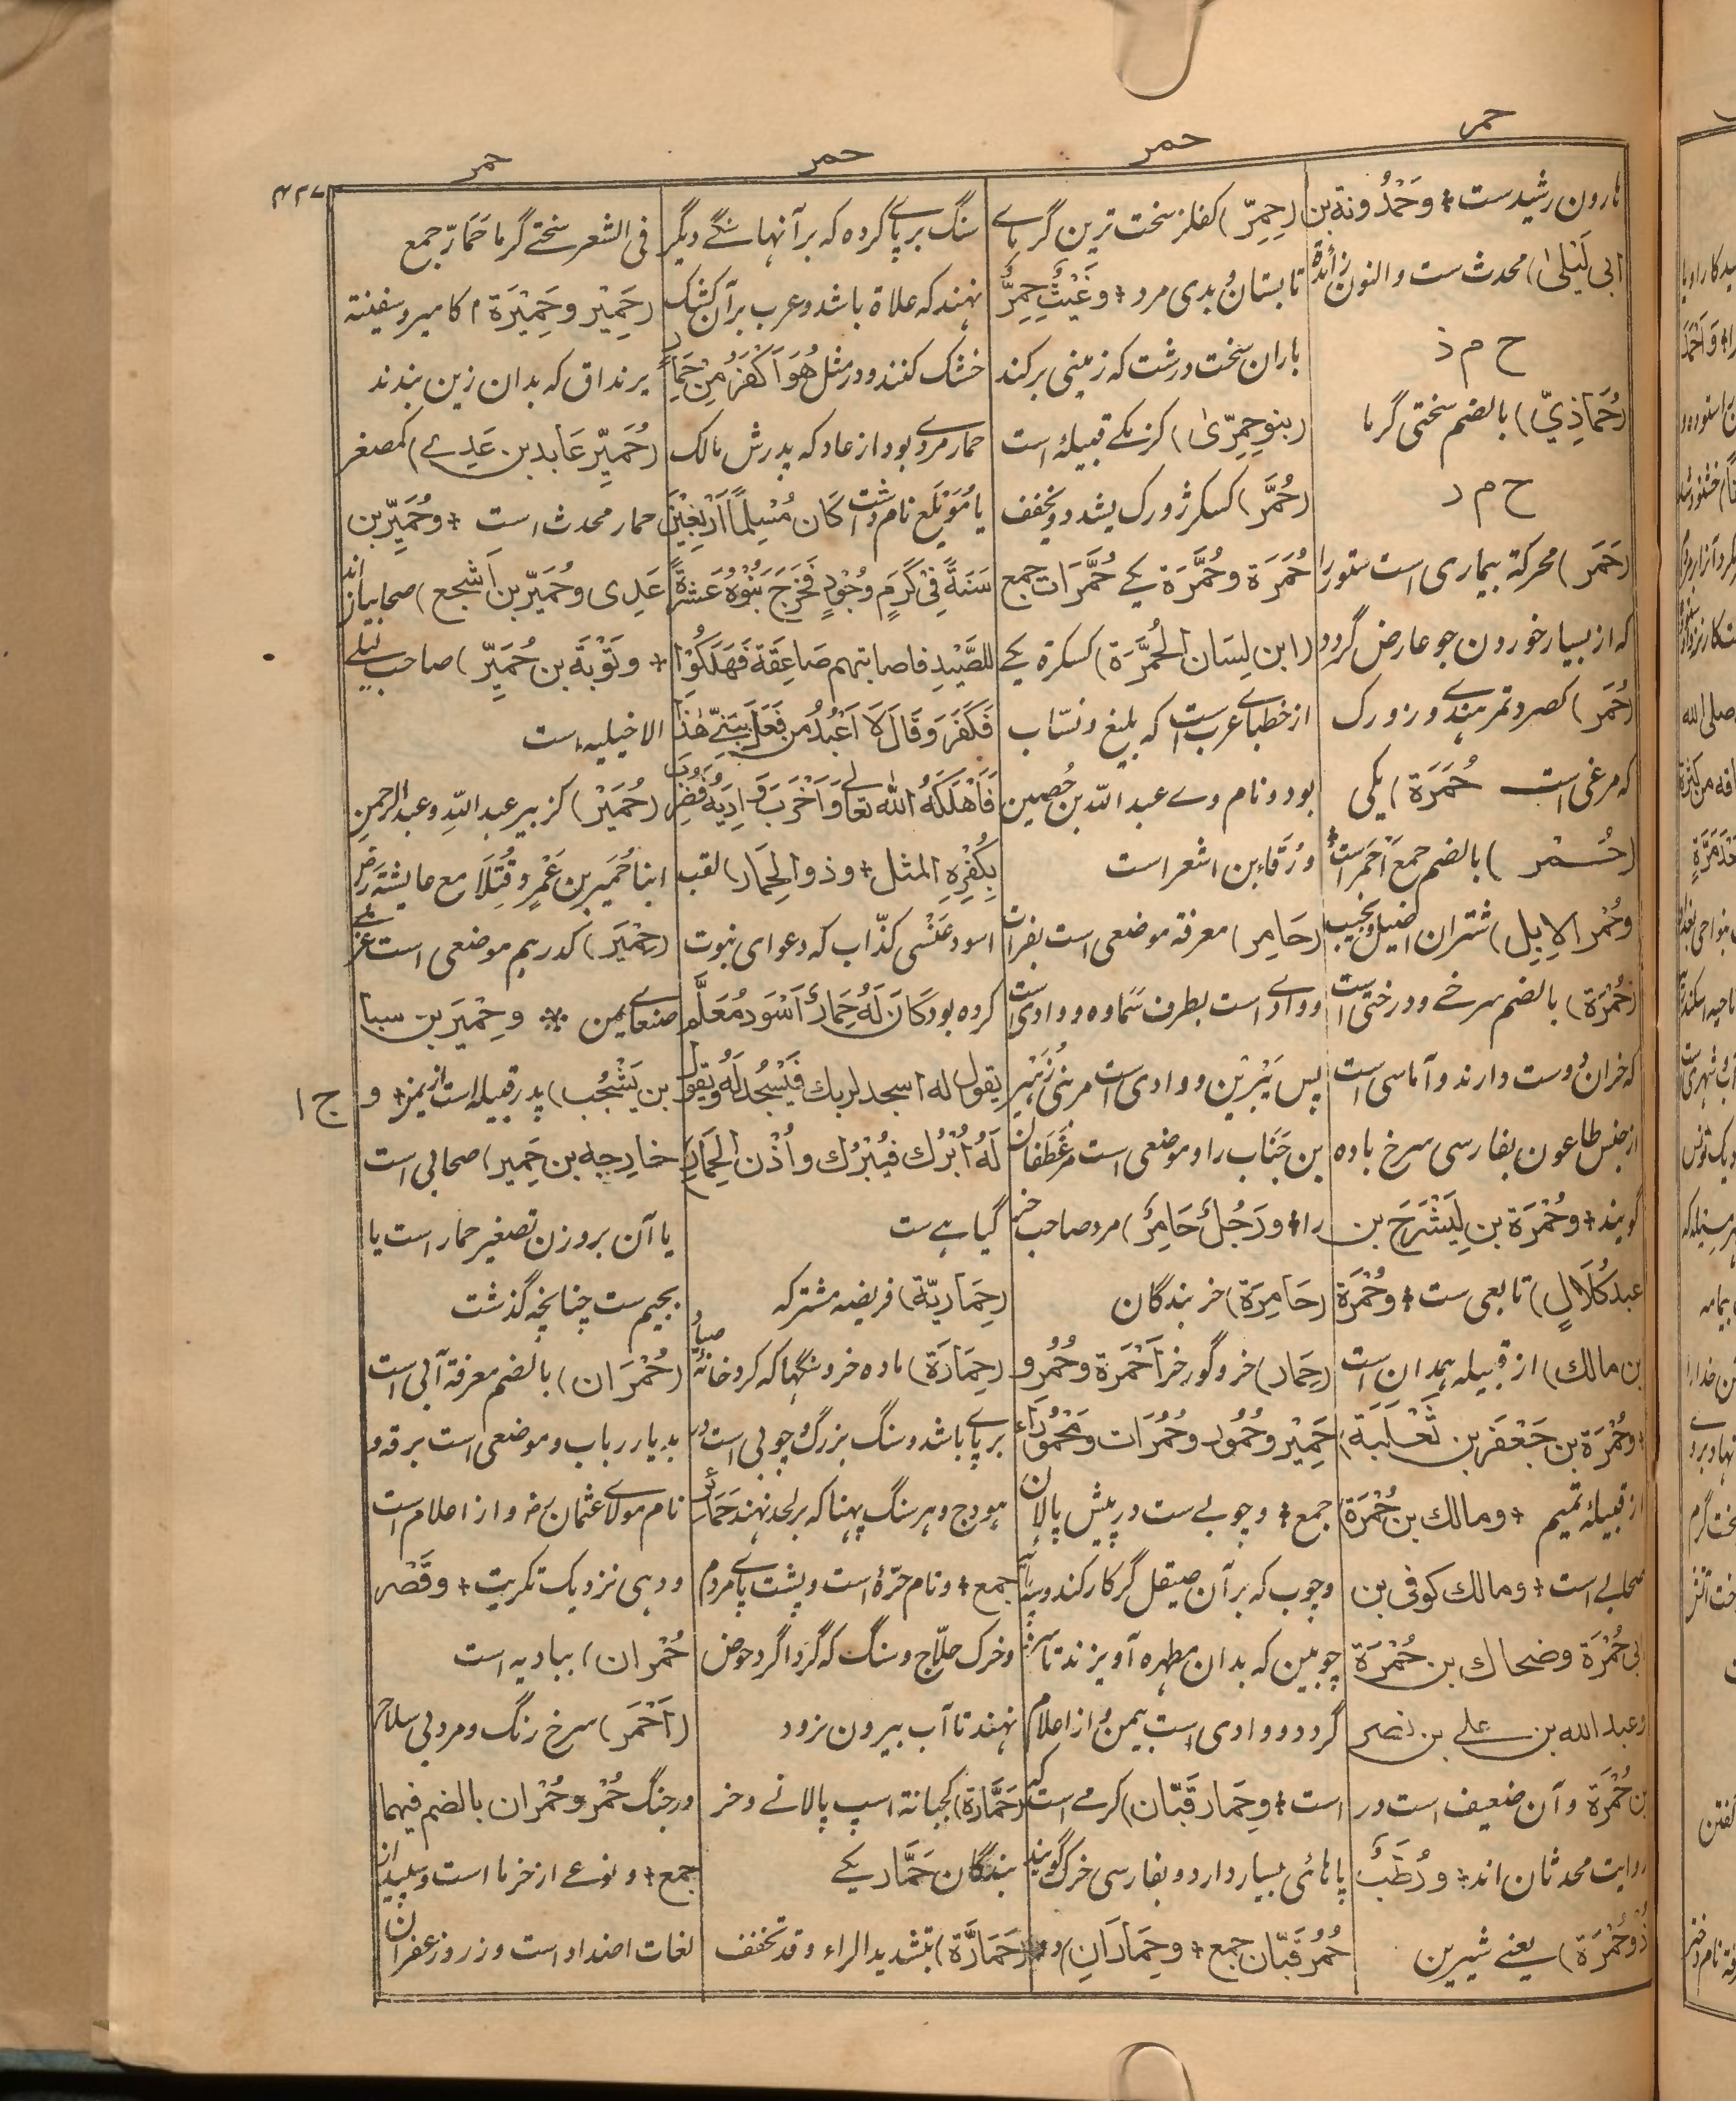 حمر
حمر
حمر
حمر
۴۲۷
هارون رشیدست + وحَمْدُونة بن
ابی لَیْلیٰ) محدث ست والنون زائدة
ح م ذ
(حُمَاذِيّ) بالضم سختی گرما
ح م ر
(حَمَر) محرکة بیماری است ستور را
که از بسیار خوردن جو عارض گردد
(حُمَر) کصرد تمر هندی و زورک
که مرغی است حُمَرَة) یکی
(حُمْر) بالضم جمع اَحْمَر است
وحُمْر الاِبِل) شتران اصیل و نجیب
(حُمْرَة) بالضم سرخے و درختی است
که خران دوست دارند و آماسی است
از جنس طاعون بفارسی سرخ باده
گویند + وحُمْرَة بن لِیَشْرَحَ بن
عبد کُلَالٍ) تابعی ست + وحُمْرَة
بن مالك) از قبیله همدان است
وحُمْرَة بن جَعْفَر بن ثَعْلَبَة)
از قبیلۀ تمیم + ومالك بن حُمْرَة)
صحابے است + ومالك کوفی بن
ابی حُمْرَة وضحاك بن حُمْرَة
وعبد الله بن علے بن نصر
بن حُمْرَة و آن ضعیف است در
روایت محدثان اند + ورُطَبٌ
ذُوحُمْرَة) یعنے شیرین
(حِمِرّ) کفلز سخت ترین گرمای
تابستان و بدی مرد + وغَیْثٌ حِمِرٌّ
باران سخت درشت که زمینی برکند
(بنو حِمِرّیٰ) کزمکے قبیلۀ است
(حُمَّر) کسکر ژورک یشدد ویخفف
حُمَرَة وحُمَّرَة یکے حُمَّرَات جمع
(ابن لِسَان الحُمَّرَة) کسکرة یکے
از خطبای عرب است که بلیغ و نسّاب
بود و نام وے عبد اللّٰه بن حُصین
ورْقاء بن اشعر است
(حَامِر) معرفة موضعی است بفرات
و وادی است بطرف سَماوه و وادی است
پس یَبْرِین و وادی است مر بنی زُهَیْر
بن جَنَاب را و موضعی است مر غَطَفان
را + ورَجُلٌ حَامِرٌ) مرد صاحب خر
(حَامِرَة) خربندگان
(حِمَار) خر و گورخر اَحْمِرَة وحُمُر و
حَمِیْر وحُمُور وحُمُرَات ومَحْمُورَاء
جمع + و چوبے ست در پیش پالان
و چوب که بر آن صیقل گر کار کند و سه پایه
چوبین که بدان مطهره آویزند تا سرد
گردد و وادی است بیمن و از اعلام
است + وحِمَار قَبَّان) کرمے است که
پاهائی بسیار دارد و بفارسی خرک گویند
حُمُر قَبّان جمع + وحِمَارَانِ) دو
سنگ برپای کرده که بر آنها سنگے دیگر
نهند که علاة باشد و عرب بر آن کشک
خشک کنند و در مثل هُوَ اَکْفَرُ مِنْ حِمَارٍ
حمار مردی بود از عاد که پدرش مالک
یا مُوَیْلَع نام داشت کَانَ مُسْلِمًا اَرْبَعِیْنَ
سَنَةً فِیْ کَرَمٍ وجُوْدٍ فَخَرَجَ بَنُوْهُ عَشَرَةً
للصَّیْدِ فاصابتهم صَاعِقَة فَهَلَکُوْا
فَکَفَرَ وَقَالَ لَا اَعْبُدُ مَنْ فَعَلَ بِبَنِیَّ هٰذَا
فَاَهْلَکَهُ اللّٰه تعالیٰ وَاَخْرَبَ وَادِیَهُ فَضُرِبَ
بِکُفْرِهِ المثل + وذو الحِمَار) لقب
اسود عَنْسی کذّاب که دعوای نبوت
کرده بود کَانَ لَهُ حِمَارٌ اَسْوَد مُعَلَّم
یقول له اسجد لربك فَیَسْجُدُ لَهُ ویقول
لَهُ اُبْرُك فیَبْرُك واُذْن الحِمَار)
گیاهے ست
(حِمَاریّة) فریضه مشترکه
(حِمَارَة) ماده خر و سنگها که گرد خانۀ صیاد
برپای باشد و سنگ بزرگ و چوبی است در
هودج و هر سنگ پهنا که بر لحد نهند حَمَائِر
جمع + و نام حَرّۀ است و پشت پای مردم
و خرک حلّاج و سنگ که گرداگرد حوض
نهند تا آب بیرون نرود
(حَمَّارَة) کجبانة اسپ پالانے و خر
بندگان حَمَّار یکے
(حَمَارَّة) بتشدید الراء وقد تخفف
فی الشعر سختے گرما حَمَارّ جمع
(حَمِیْر وحَمِیْرَة) کامیر وسفینة
یرنداق که بدان زین بندند
(حُمَیِّر عَابد بن عَدِے) کمصغر
حمار محدث است + وحُمَیِّر بن
عَدِی وحُمَیِّر بن اَشجع) صحابیان اند
+ وتَوْبَة بن حُمَیِّر) صاحب لیلے
الاخیلیه است
(حُمَیْر) کزبیر عبد اللّٰه و عبد الرحمن
ابنا حُمَیر بن عَمْرٍو قُتِلَا مع عایشة رض
(حِمْیَر) کدرهم موضعی است غربی
صنعای یمن + وحِمْیَر بن سبا
بن یَشْجُب) پدر قبیله است از یمن + و
خارجه بن حِمْیر) صحابی است
یا آن بروزن تصغیر حمار است یا
بجیم ست چنانچه گذشت
(حُمْرَان) بالضم معرفة آبی است
بدیار رباب و موضعی است برقه و
نام مولای عثمان رضہ و از اعلام است
و دهی نزدیک تکریت + وقَصْر
حُمْران) ببادیه است
(اَحْمَر) سرخ رنگ و مرد بی سلاح
در جنگ حُمْر وحُمْران بالضم فیهما
جمع + و نوعے از خرما است و سپید از
لغات اضداد است و زر و زعفران
ج ۱